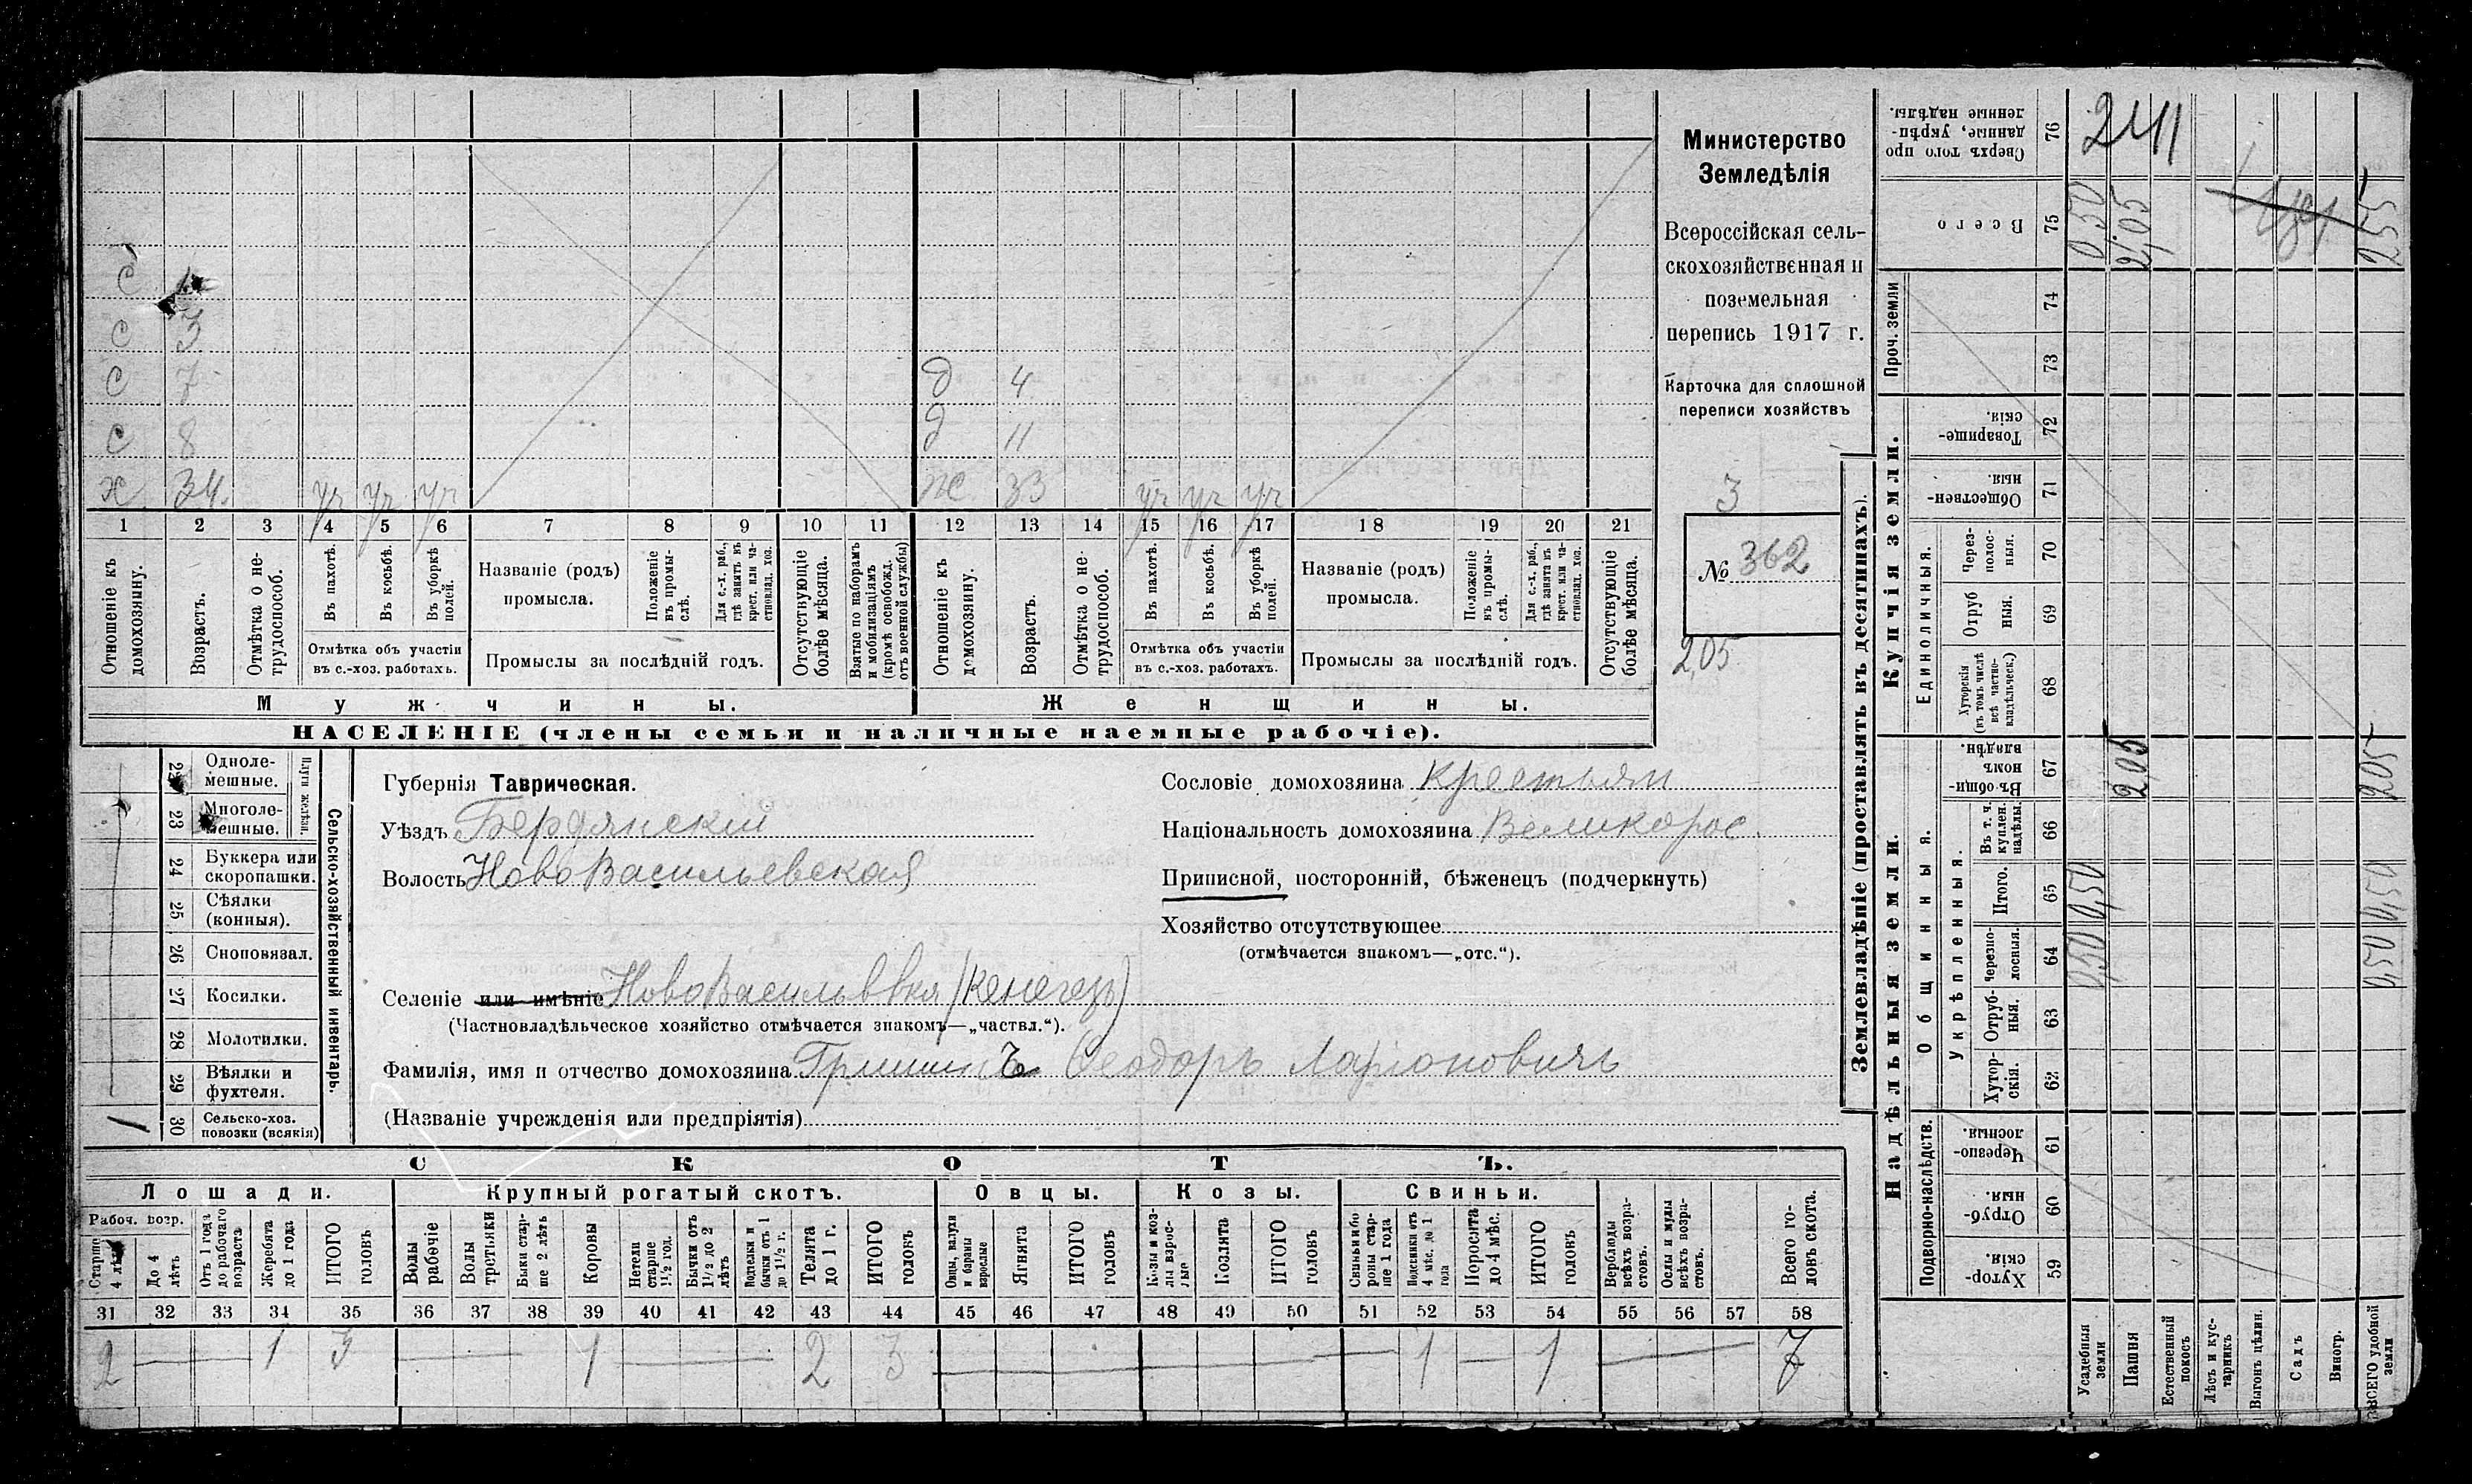 С
С 3
С 7 д 4
С 8 д 11
х 34. уч уч уч ж 33 уч уч уч
1 2 3 4 5 6 7 8 9 10 11 12 13 14 15 16 17 18 19 20 21
Отношеніе къ домохозяину.
Возрастъ.
Отмѣтка о нетрудоспособ.
Въ пахотѣ.
Въ косьбѣ.
Въ уборкѣ полей.
Отмѣтка объ участіи
въ с.-хоз. работахъ.
Названіе (родъ)
промысла.
Положеніе въ промыслѣ.
Для с.-х. раб., гдѣ занятъ въ крест. или частновлад. хоз.
Промыслы за послѣдній годъ.
Отсутствующіе болѣе мѣсяца.
Взятые по наборамъ и мобилизаціямъ (кромѣ освобожд. отъ военной службы)
Отношеніе къ домохозяину.
Возрастъ.
Отмѣтка о нетрудоспособ.
Въ пахотѣ.
Въ косьбѣ.
Въ уборкѣ полей.
Отмѣтка объ участіи
въ с.-хоз. работахъ.
Названіе (родъ)
промысла.
Положеніе въ промыслѣ.
Для с.-х. раб., гдѣ занята въ крест. или частновлад. хоз.
Промыслы за послѣдній годъ.
Отсутствующіе болѣе мѣсяца.
Мужчины.
Женщины.
НАСЕЛЕНІЕ (члены семьи и наличные наемные рабочіе).
Министерство
Земледѣлія
Всероссійская сель-
скохозяйственная и
поземельная
перепись 1917 г.
Карточка для сплошной
переписи хозяйствъ
3
№ 362
2,05
Сельско-хозяйственный инвентарь.
Плуги желѣзн.
22 Одноле-
мешные.
23 Многоле-
мешные.
24 Буккера или
скоропашки.
25 Сѣялки
(конныя).
26 Сноповязал.
27 Косилки.
28 Молотилки.
29 Вѣялки и
фухтеля.
1 30 Сельско-хоз.
повозки (всякія)
Губернія Таврическая.
Уѣздъ Бердянскій
Волость НовоВасильевская
Селеніе или имѣніе НовоВасильевка (Кенегезъ)
(Частновладѣльческое хозяйство отмѣчается знакомъ—„частвл.“).
Фамилія, имя и отчество домохозяина Гришинъ Ѳеодоръ Ларіоновичъ
(Названіе учрежденія или предпріятія)
Сословіе домохозяина Крестьян
Національность домохозяина Великорос.
Приписной, посторонній, бѣженецъ (подчеркнуть)
Хозяйство отсутствующее
(отмѣчается знакомъ—„отс.“).
СКОТЪ.
Лошади.
Крупный рогатый скотъ.
Овцы.
Козы.
Свиньи.
Рабоч. возр.
Старше 4 лѣтъ
До 4 лѣтъ
Отъ 1 года до рабочаго возраста
Жеребята до 1 года
ИТОГО головъ
Волы рабочіе
Волы третьяки
Быки старше 2 лѣтъ
Коровы
Нетели старше 1½ год.
Бычки отъ 1½ до 2 лѣтъ
Подтелки и бычки отъ 1 до 1½ г.
Телята до 1 г.
ИТОГО головъ
Овцы, валухи и бараны взрослые
Ягнята
ИТОГО головъ
Козы и козлы взрослые
Козлята
ИТОГО головъ
Свиньи и боровы старше 1 года
Подсвинки отъ 4 мѣс. до 1 года
Поросята до 4 мѣс.
ИТОГО головъ
Верблюды всѣхъ возрастовъ.
Ослы и мулы всѣхъ возрастовъ.
Всего головъ скота.
31 32 33 34 35 36 37 38 39 40 41 42 43 44 45 46 47 48 49 50 51 52 53 54 55 56 57 58
2 — 1 3 — 1 — 2 3 — — 1 — 1 — 7
Землевладѣніе (проставлять въ десятинахъ).
Надѣльныя земли.
Купчія земли.
Проч. земли
Подворно-наслѣдств.
Общинныя.
Укрѣпленныя.
Единоличныя.
Сверхъ того проданные, укрѣпленные надѣлы. 76 241
Всего 75 0,50 2,05 2,55
74
73
Товарищескія. 72
Общественныя. 71
Черезполосныя. 70
Отрубныя. 69
Хуторскія (въ томъ числѣ всѣ частновладѣльческ.) 68
Въ общинномъ владѣн. 67 2,05 2,05
Въ т. ч. куплен. надѣлы. 66
Итого. 65 0,50 0,50
Черезполосныя. 64 0,50 0,50
Отрубныя. 63
Хуторскія. 62
Черезполосныя. 61
Отрубныя. 60
Хуторскія. 59
Усадебныя земли
Пашня
Естественный покосъ
Лѣсъ и кустарникъ
Выгонъ цѣлин.
Садъ
Виногр.
ВСЕГО удобной земли